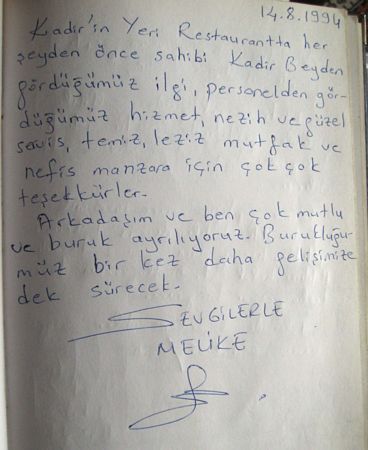 14.8.1994
Kadir'in Yeri Restaurantta her
şeyden önce sahibi Kadir Beyden
gördüğümüz ilgi, personelden gör-
düğümüz hizmet, nezih ve güzel
savis, temiz, leziz mutfak ve
nefis manzara için çok çok
teşekkürler.
Arkadaşım ve ben çok mutlu
ve buruk ayrılıyoruz. Burukluğu-
müz bir kez daha gelişimize
dek sürecek.
SEVGİLERLE
MELİKE